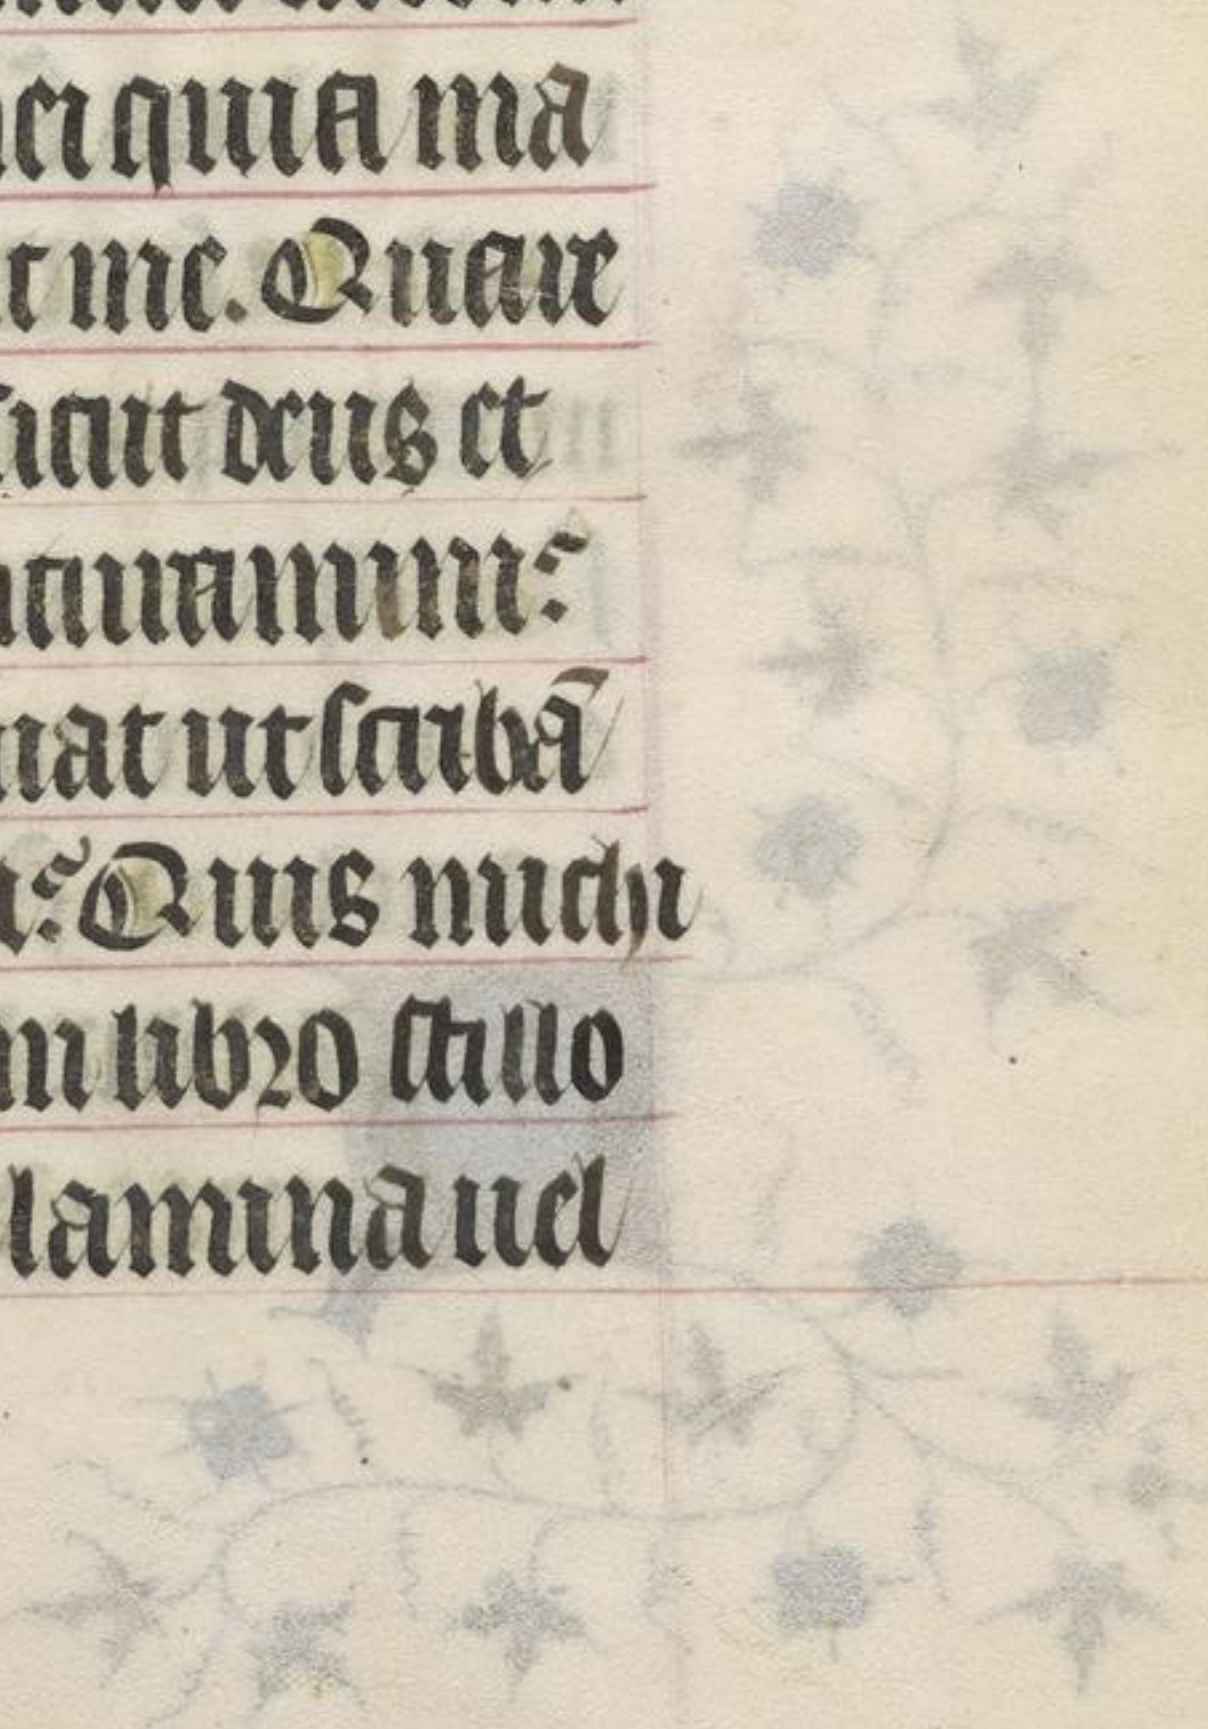 ei quia ma
t me. Quare
sicut deus et
turamini?
uat ut scribã
i? Quis michi
in libro stillo
lamina uel